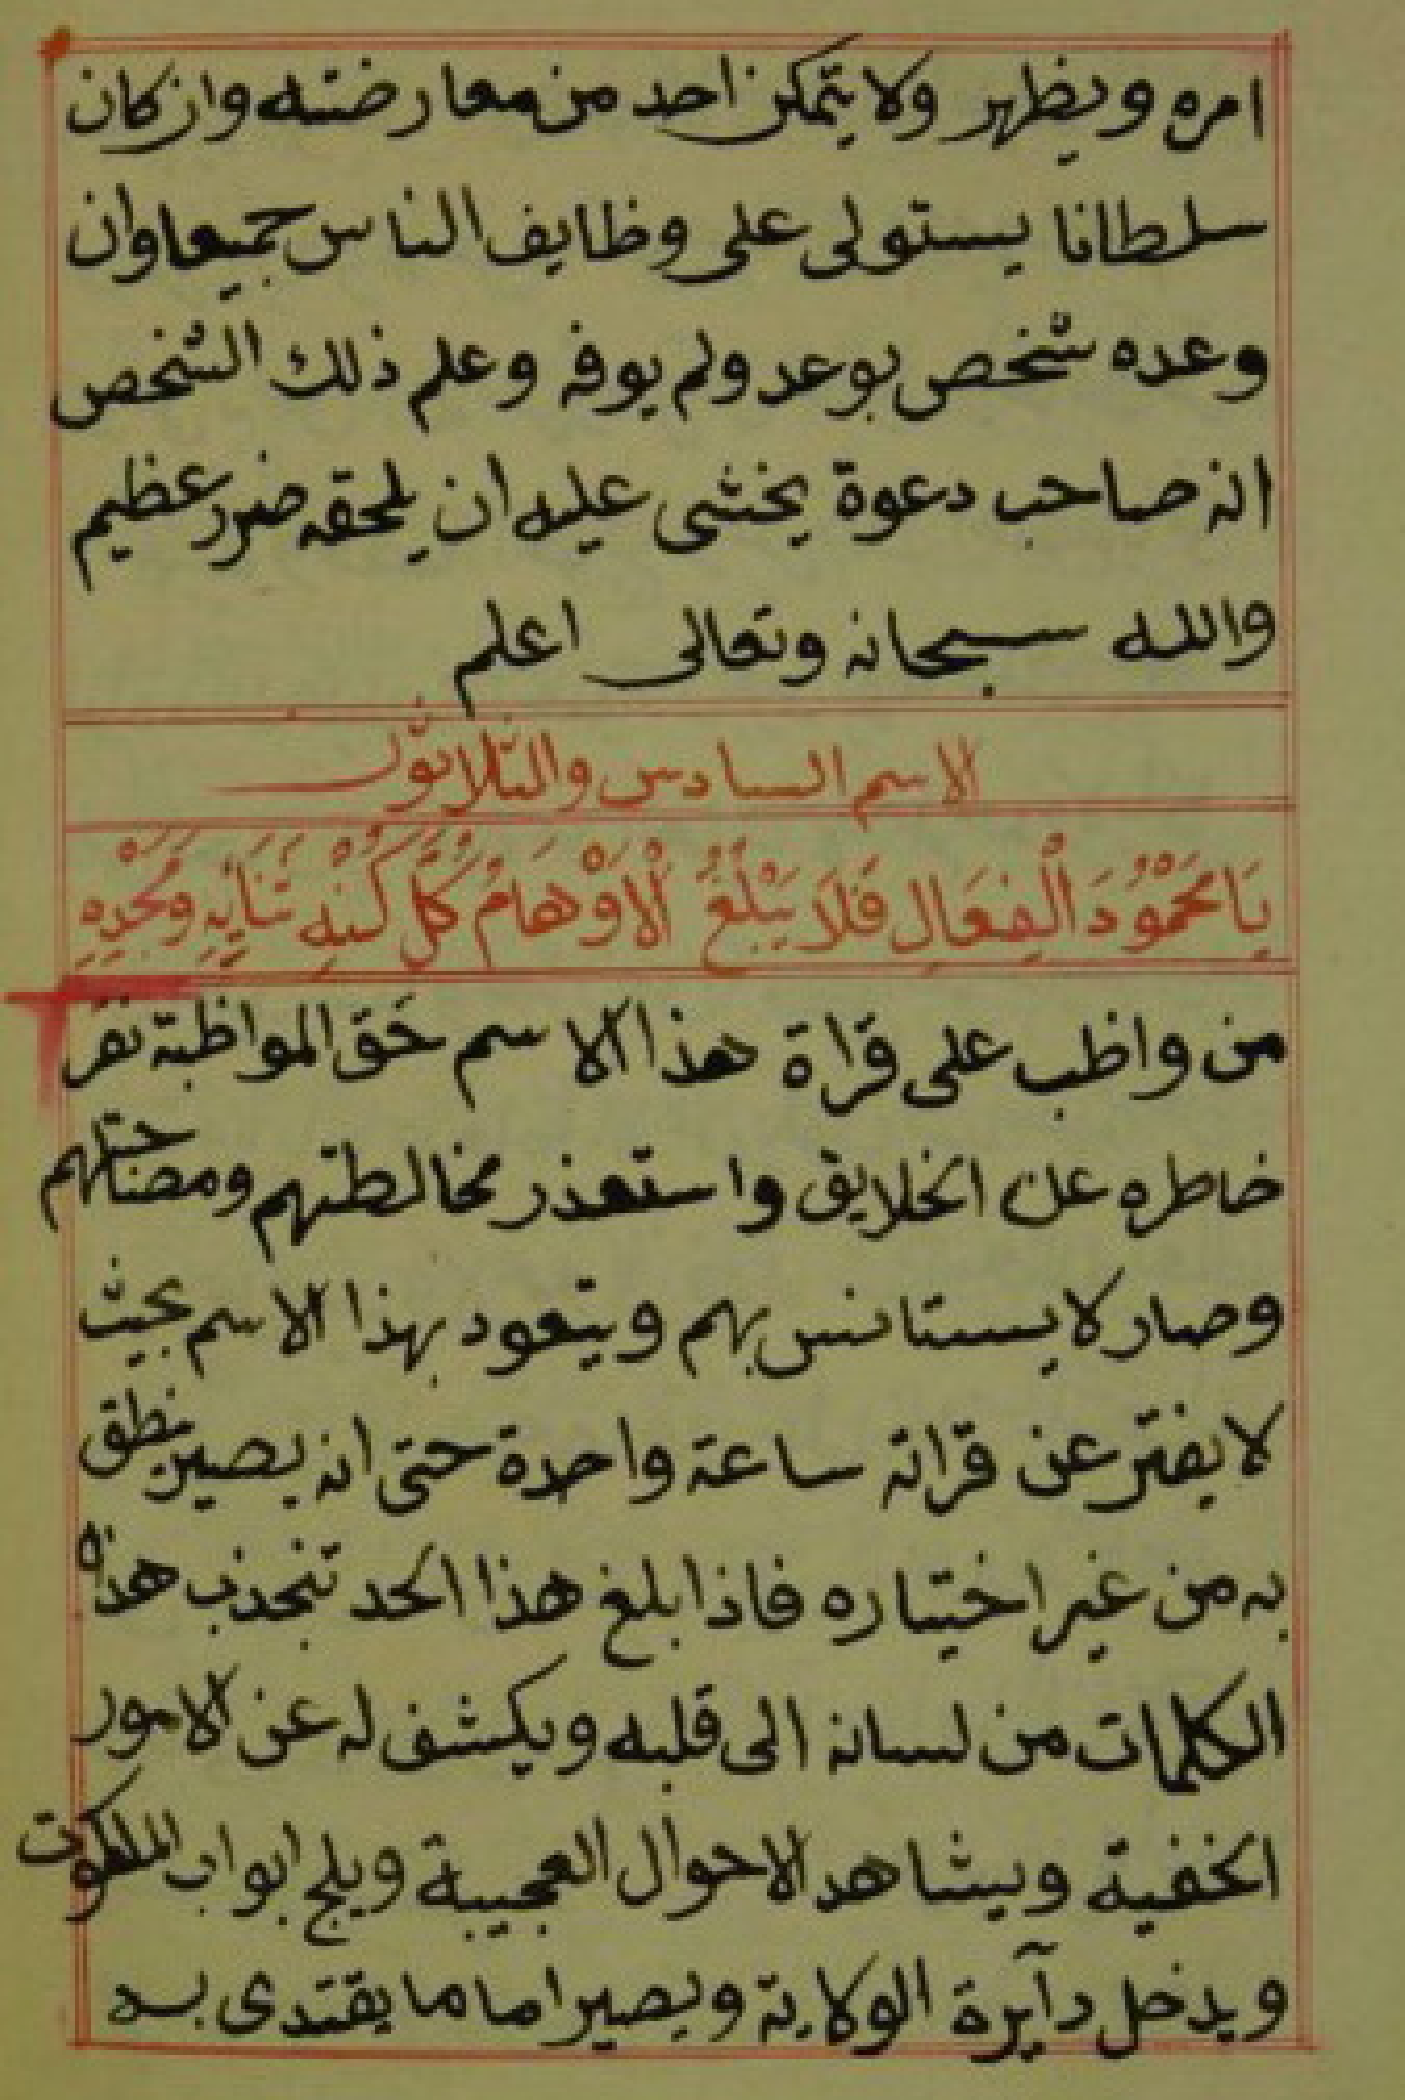 امره ويظهر ولا يتمكن احد من معارضته وان كان
سلطانا يستولى على وظايف الناس جميعا وان
وعده شخص بوعد ولم يوفه وعلم ذلك الشخص
انه صاحب دعوة يخشى عليه ان يلحقه ضرر عظيم
والله سبحانه وتعالى اعلم
الاسم السادس والثلاثون
يَا مَحْمُوْدَ الْفِعَالِ فَلَا يَبْلُغُ الْاَوْهَامُ كُلَّ كُنْهِ ثَنَايِهِ وَمَجْدِهِ
من واظب على قراة هذا الاسم حَق المواظبة نفر
خاطره عن الخلايق واستعذر مخالطتهم ومصاحبتهم
وصار لا يستانس بهم ويتعود بهذا الاسم بحيث
لا يفتر عن قراته ساعة واحدة حتى انه يصير ينطق
به من غير اختياره فاذا بلغ هذا الحد تنجذب هذه
الكلمات من لسانه الى قلبه ويكشف له عن الامور
الخفية ويشاهد الاحوال العجيبة ويلج ابواب الملكوت
ويدخل دآيرة الولاية ويصير اماما يقتدى به